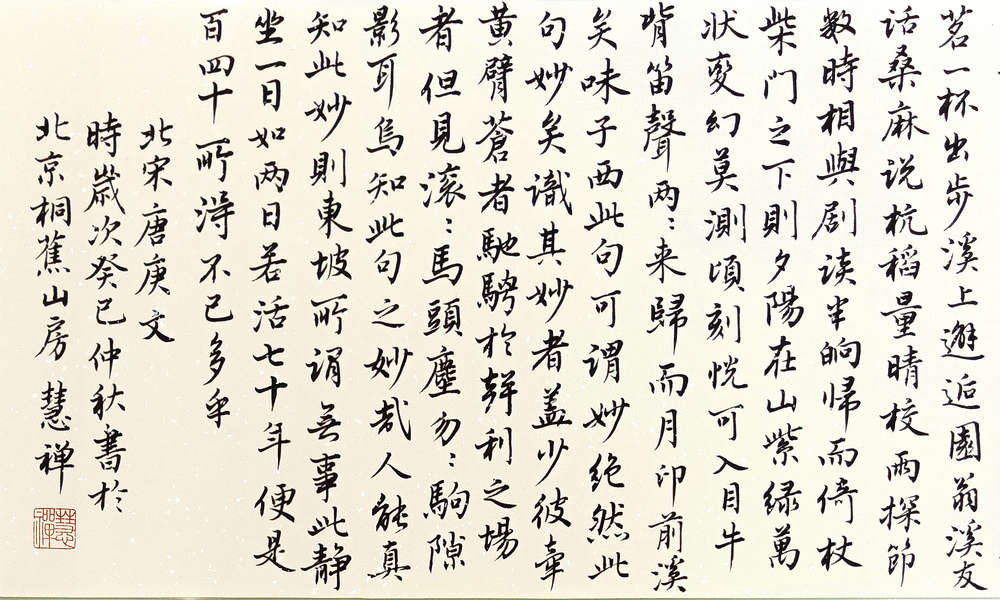 茗一杯出步溪上邂逅園翁溪友
話桑麻说杭稻量晴校雨探節
數時相與剧谈半晌归而倚杖
柴門之下則夕陽在山紫绿萬
状变幻莫測頃刻恍可入目牛
背笛聲两:来歸而月印前溪
矣味子西此句可谓妙绝然此
句妙矣識其妙者盖少彼牽
黄臂蒼者馳騁於聲利之場
者但見滚:馬頭塵匆:駒隙
影耳烏知此句之妙哉人能真
知此妙則東坡所谓无事此静
坐一日如两日若活七十年便是
百四十所得不已多乎
北宋唐庚文
時歲次癸巳仲秋書於
北京桐蕉山房 慧禅
慧禪